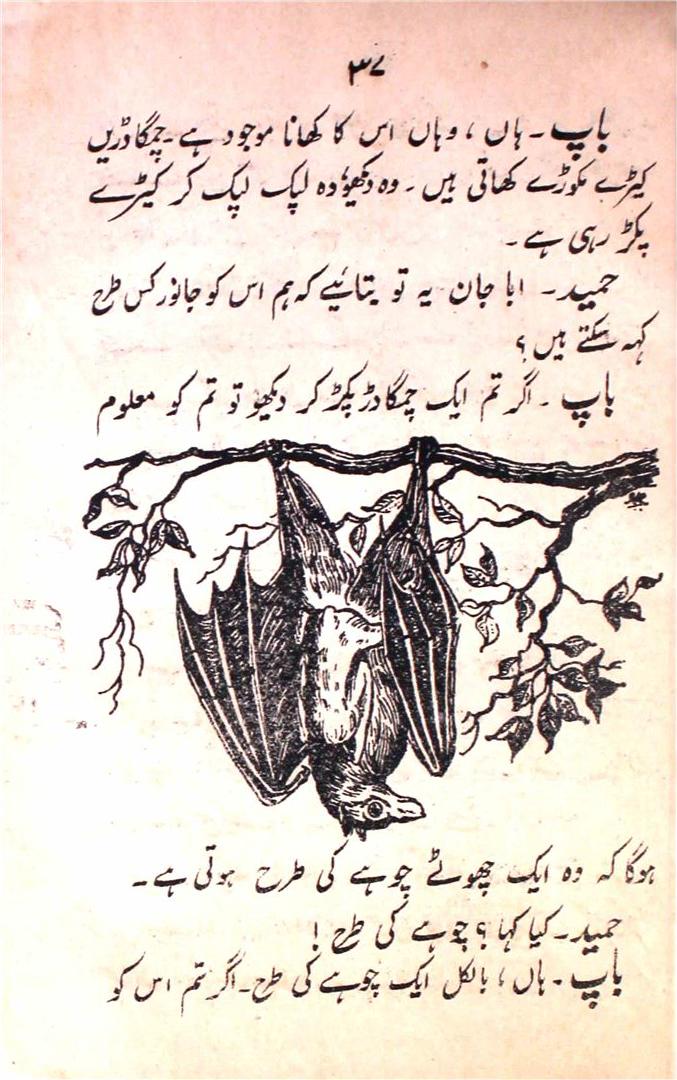 ۳۷
باپ ۔ ہاں ، وہاں اس کا کھانا موجود ہے ۔ چمگادڑیں
کیڑے مکوڑے کھاتی ہیں ۔ وہ دیکھو، وہ لپک لپک کر کیڑے
پکڑ رہی ہے ۔
حمید ۔ ابا جان یہ تو بتائیے کہ ہم اس کو جانور کس طرح
کہہ سکتے ہیں ؟
باپ ۔ اگر تم ایک چمگادڑ پکڑ کر دیکھو تو تم کو معلوم
ہوگا کہ وہ ایک چھوٹے چوہے کی طرح ہوتی ہے ۔
حمید ۔ کیا کہا ؟ چوہے کی طرح !
باپ ۔ ہاں ، بالکل ایک چوہے کی طرح ۔ اگر تم اس کو